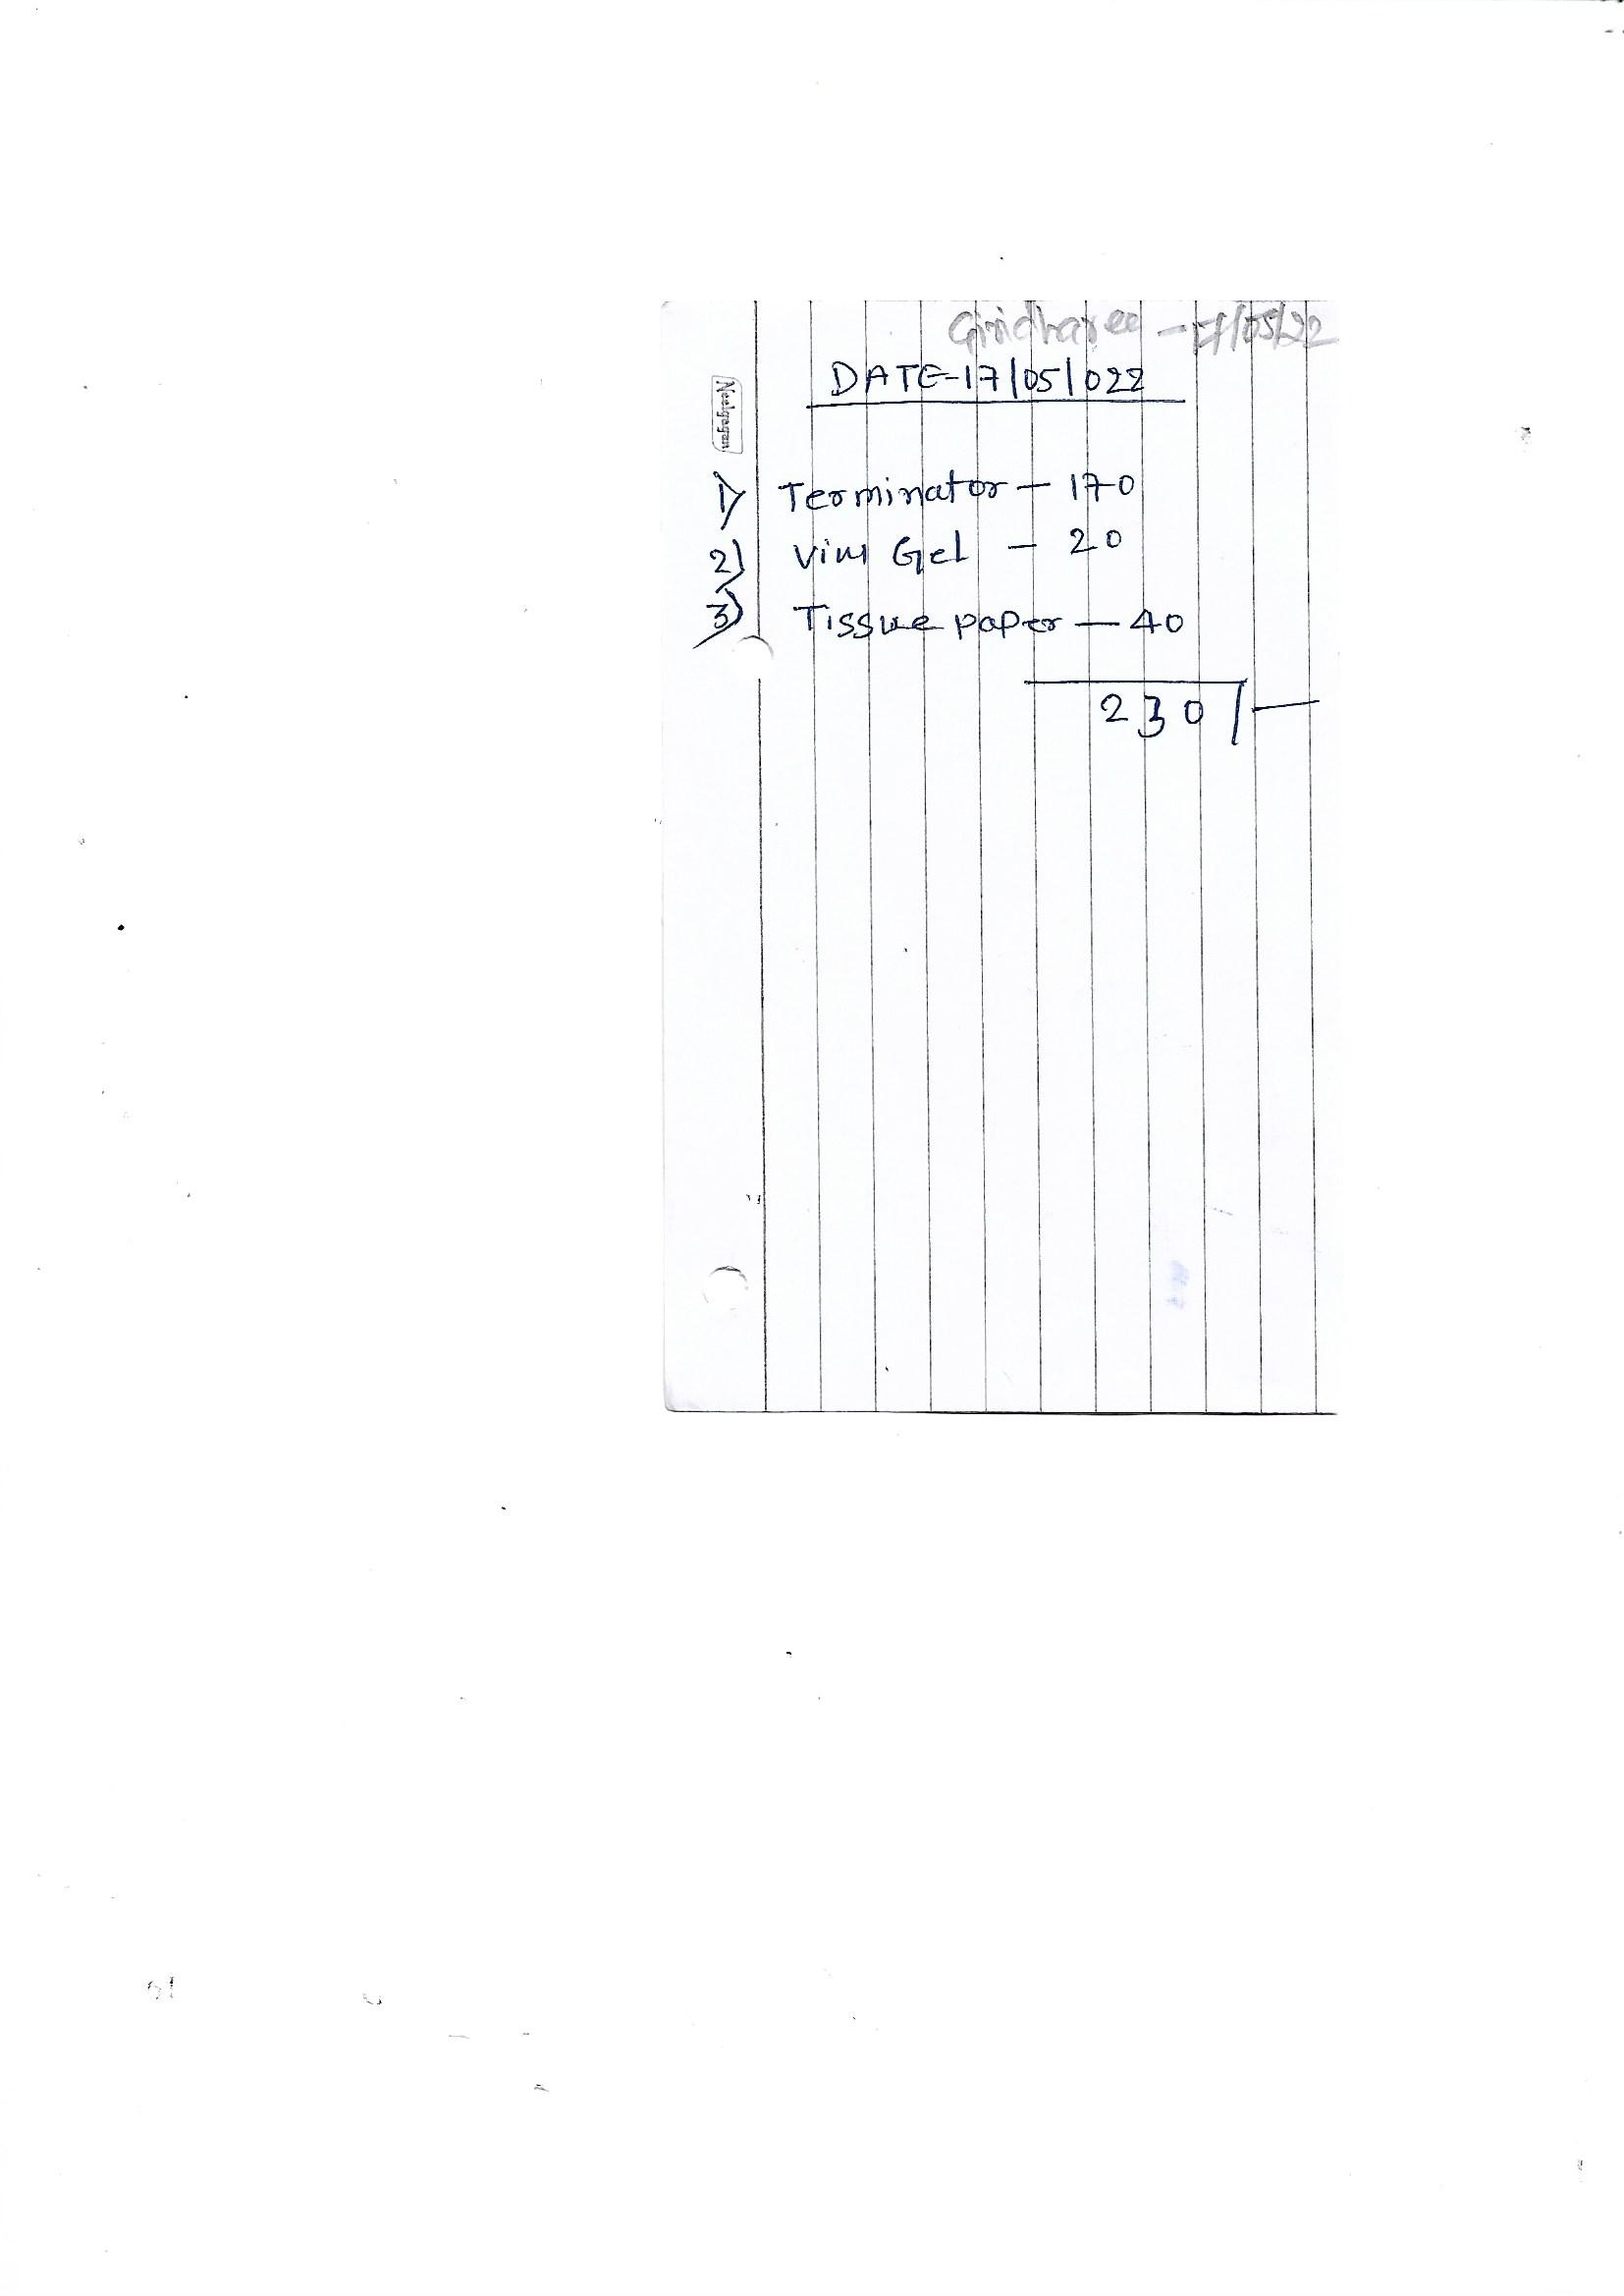 Giridharee - 17/05/22
DATE-17/05/022
Neelgagan
1) Terminator - 170
2) Vim Gel - 20
3) Tissue paper - 40
230/-